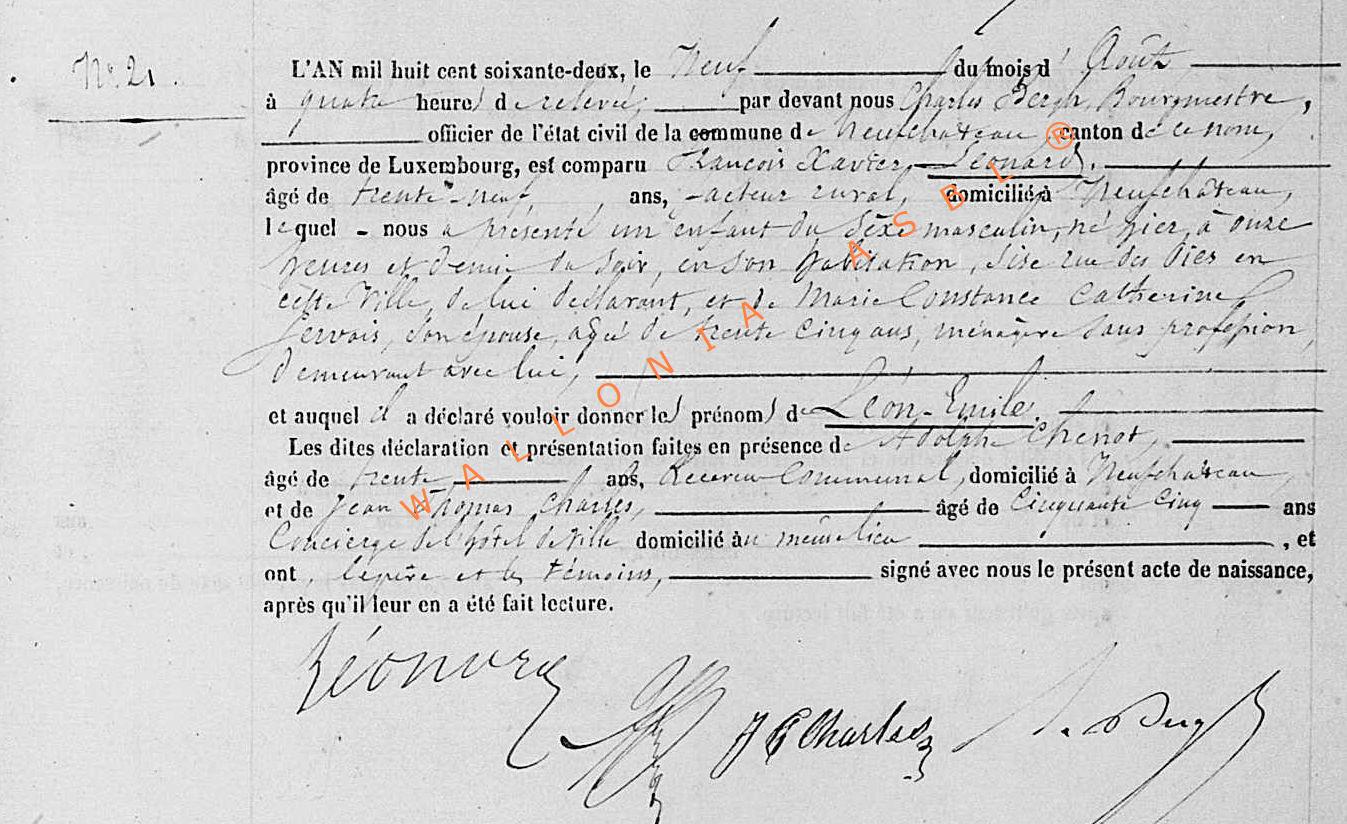 N° 21.
L'AN mil huit cent soixante-deux, le Neuf du mois d' Août
à quatre heures de relevée, par devant nous Charles Bergh, Bourgmestre,
officier de l'état civil de la commune de Neufchâteau, canton de ce nom,
province de Luxembourg, est comparu François Xavier Léonard.
âgé de trente-neuf, ans, facteur rural, domicilié à Neufchâteau,
lequel - nous a présenté un enfant du sèxe masculin, né hier, à onze
heures et demie du soir, en son habitation, sise rue des en
cette Ville, de lui déclarant, et de Marie Constance Catherine
Gervais, son épouse, agée de trente cinq ans, ménagère sans profession,
demeurant avec lui,
et auquel il a déclaré vouloir donner les prénoms de Léon-Emile.
Les dites déclaration et présentation faites en présence de Adolphe Chenot,
âgé de trente ans, Receveur Communal, domicilié à Neufchâteau,
et de Jean Thomas Charles, âgé de Cinquante Cinq ans
Concierge de l'hôtel de Ville domicilié au même lieu, et
ont, le père et les témoins, signé avec nous le présent acte de naissance,
après qu'il leur en a été fait lecture.
Léonard J T Charles
WALLONIA ASBL ®